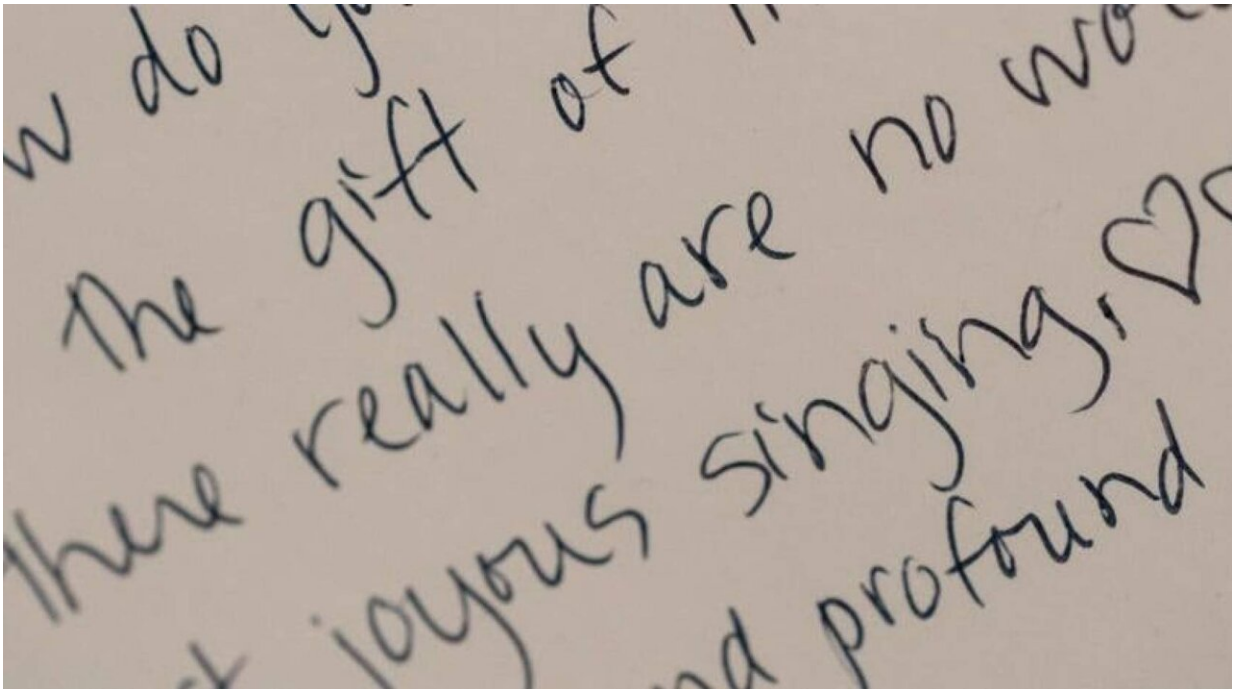 do
the gift of
there really are no
joyous singing, ♡
profound